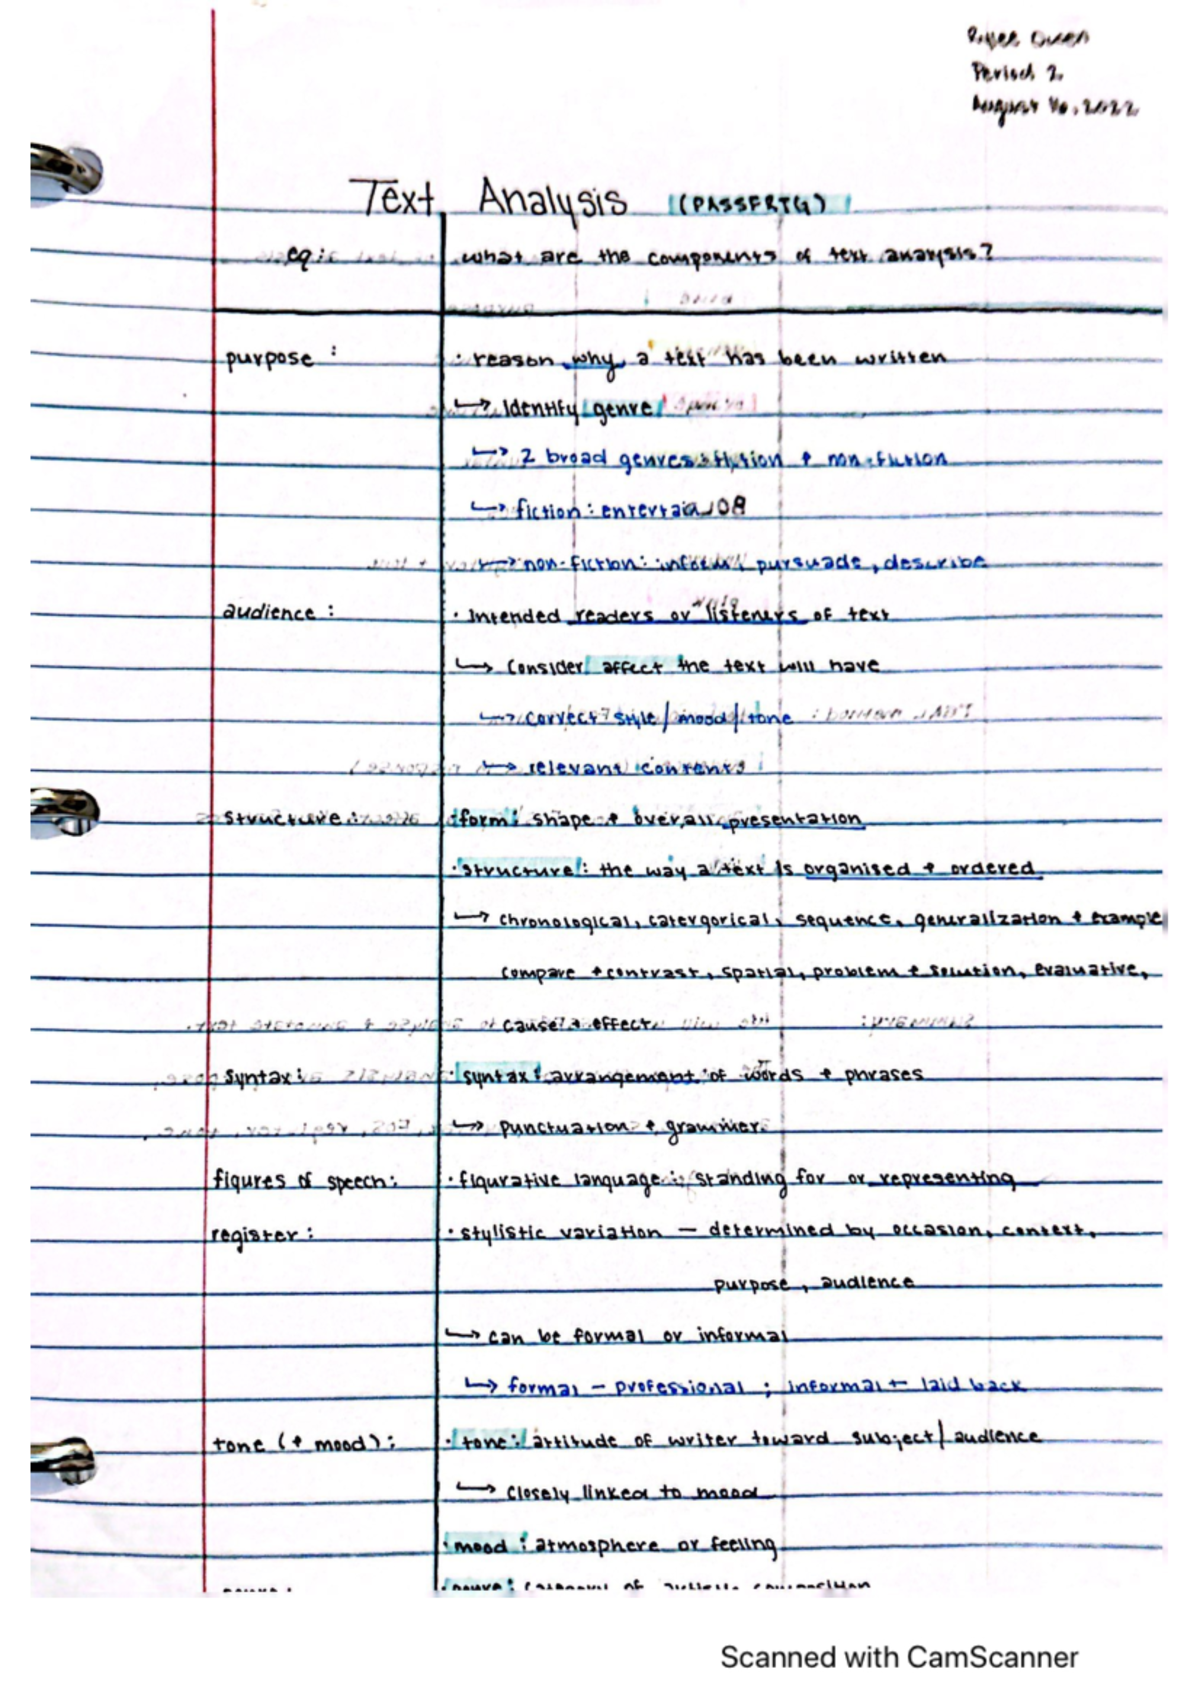 Rylee Owen
Period 2
August 16, 2022
Text Analysis (PASSFRTG)
eq: what are the components of text analysis?
purpose: · reason why a text has been written
↳ Identify genre
↳ 2 broad genres: fiction + non-fiction
↳ fiction: entertain
↳ non-fiction: inform, pursuade, describe
audience: · Intended readers or listeners of text
↳ Consider affect the text will have
↳ correct style/mood/tone
↳ relevant contents
structure: · form: shape + overall presentation
· structure: the way a text is organised + ordered
↳ chronological, catergorical, sequence, generalization + example
compare + contrast, spatial, problem + solution, evaluative,
cause + effect
syntax: · syntax: arrangement of words + phrases
↳ punctuation + grammer
figures of speech: · figurative language: standing for or representing
register: · stylistic variation — determined by occasion, context,
purpose, audience
↳ can be formal or informal
↳ formal – professional ; informal – laid back
tone (+ mood): · tone: attitude of writer toward subject/audience
↳ closely linked to mood
· mood: atmosphere or feeling
genre: · genre: category of artistic composition
Scanned with CamScanner